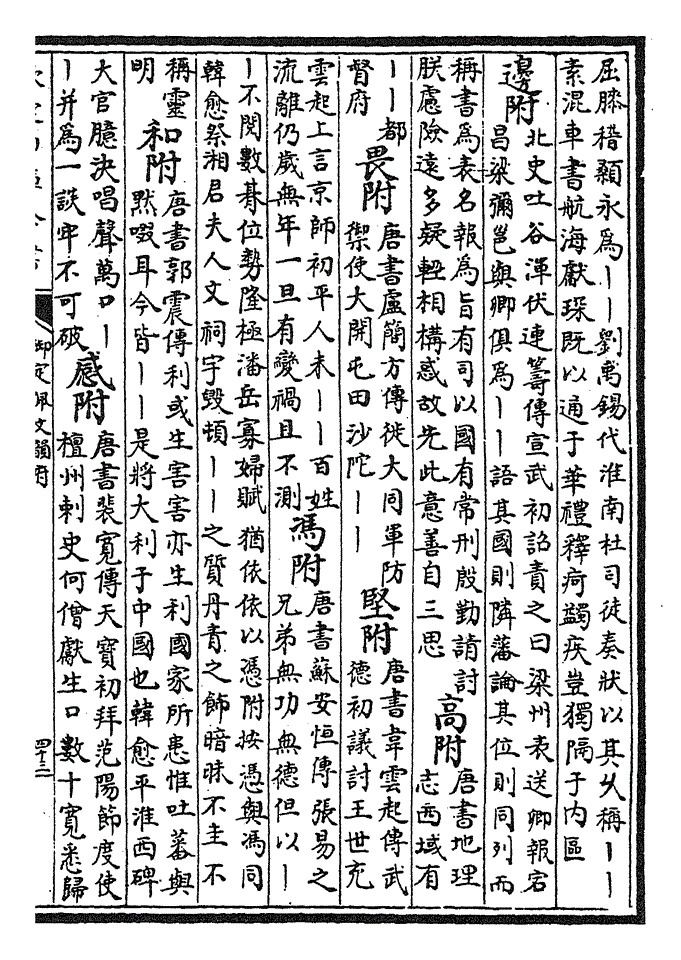 屈膝稽顙永為——劉禹錫代淮南杜司徒奏狀以其久稱——
素混車書航海獻琛既以通于華禮釋疴蠲疾豈獨隔于内區
邊附
北史吐谷渾伏連籌傳宣武初詔責之曰梁州表送卿報宕
昌梁彌邕與卿俱為——語其國則隣藩論其位則同列而
稱書為表名報為旨有司以國有常刑殷勤請討
朕慮險遠多疑輕相構惑故先此意善自三思
高附
唐書地理
志西域有
——都
督府
畏附
唐書盧簡方傳徙大同軍防
禦使大開屯田沙陀——
堅附
唐書韋雲起傳武
德初議討王世充
雲起上言京師初平人未——百姓
流離仍歲無年一旦有變禍且不測
馮附
唐書蘇安恒傳張易之
兄弟無功無德但以—
—不閔數朞位勢隆極潘岳寡婦賦猶依依以憑附按憑與馮同
韓愈祭湘君夫人文祠宇毀頓——之質丹青之飾暗昧不圭不
稱靈
明
和附
唐書郭震傳利或生害害亦生利國家所患惟吐蕃與
默啜耳今皆——是將大利于中國也韓愈平淮西碑
大官臆決唱聲萬口—
—并為一談牢不可破
感附
唐書裴寛傳天寶初拜范陽節度使
檀州刺史何僧獻生口數十寛悉歸
御定佩文韻府
四十三